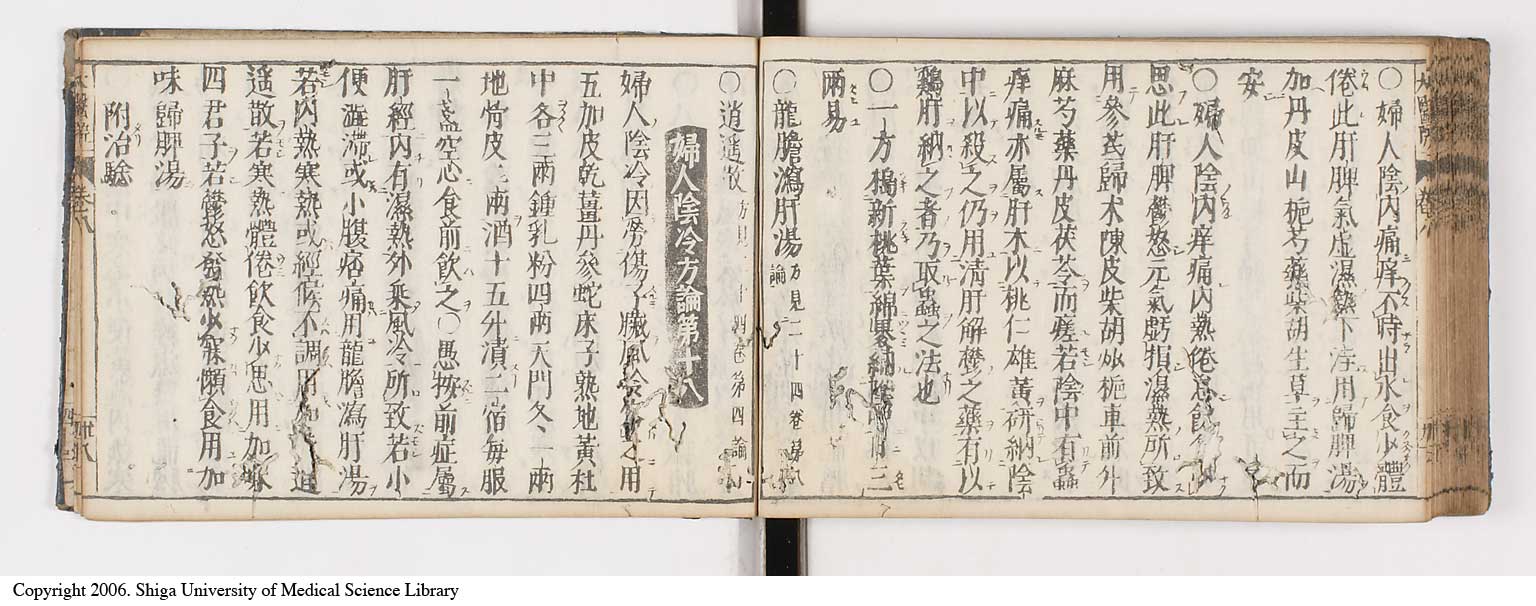 〇婦人陰内痛痒不時出水食少體
倦此肝脾氣虛濕熱下注用歸脾湯
加丹皮山梔芍藥柴胡生草主之而
安
〇婦人陰内痒痛内熱倦怠飲食少
思此肝脾鬱怒元氣虧損濕熱所致
用參芪歸朮陳皮柴胡炒梔車前外
麻芍藥丹皮茯苓而瘥若陰中有蟲
痒痛亦屬肝木以桃仁雄黃研納陰
中以殺之仍用清肝解欝之藥有以
鷄肝納之者乃取蟲之法也
〇一方搗新桃葉綿裹納陰中日三
兩易
〇龍膽瀉肝湯方見二十四卷第八論
〇逍遥散方見十四卷第四論
婦人陰冷方論第十八
婦人陰冷因勞傷子臟風冷客之用
五加皮乾薑丹參蛇床子熟地黃杜
中各三兩鍾乳粉四兩天門冬一兩
地骨皮二兩酒十五升漬二宿每服
一盞空心食前飲之〇愚按前症屬
肝經内有濕熱外乗風冷所致若小
便澁滯或小腹痞痛用龍膽瀉肝湯
若内熱寒熱或經候不調用加味逍
遥散若寒熱體倦飲食少思用加味
四君子若鬱怒發熱少寐懶食用加
味歸脾湯
附治驗
Copyright 2006. Shiga University of Medical Science Library